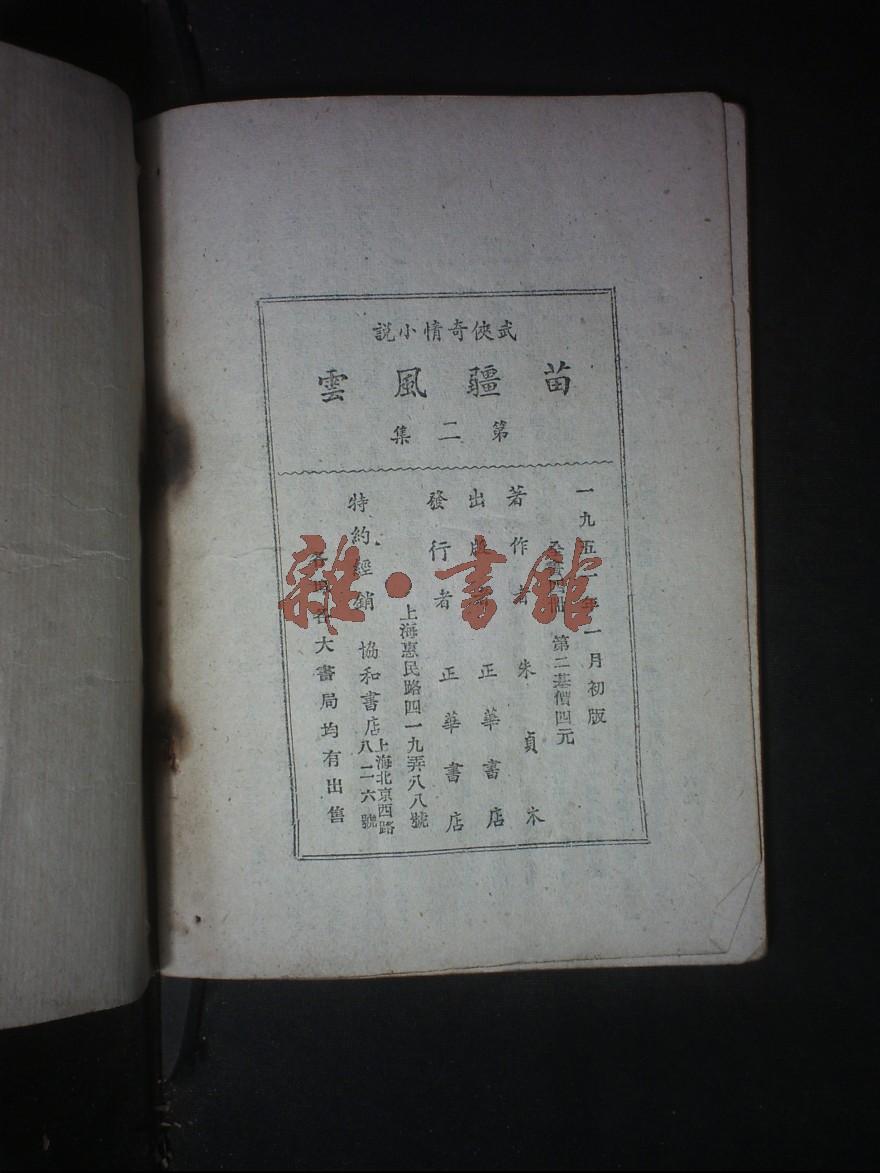 武俠奇情小説
苗疆風雲
第二集
一九五一年一月初版
全書四冊 第二基價四元
著作者 朱貞木
出版者 正華書店
發行者 正華書店
上海惠民路四一九弄八八號
特約經銷 協和書店
上海北京西路
八二六號
各大書局均有出售
雜·書館